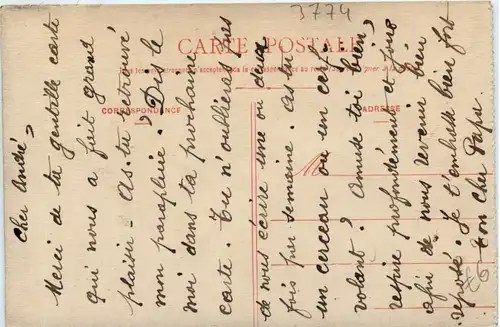 3774
CARTE POSTALE
CORRESPONDANCE
ADRESSE
M
Cher André,
Merci de ta gentille carte
qui nous a fait grand
plaisir. As-tu retrouvé
mon parapluie? Dis le
moi dans ta prochaine
carte. Tu n'oublieras pas
de nous écrire une ou deux
fois par semaine. As-tu
un cerceau ou un cerf
volant? Amuse toi bien,
respire profondément et fort
afin de nous revenir bien
reposé. Je t'embrasse bien fort
ton cher Papa.